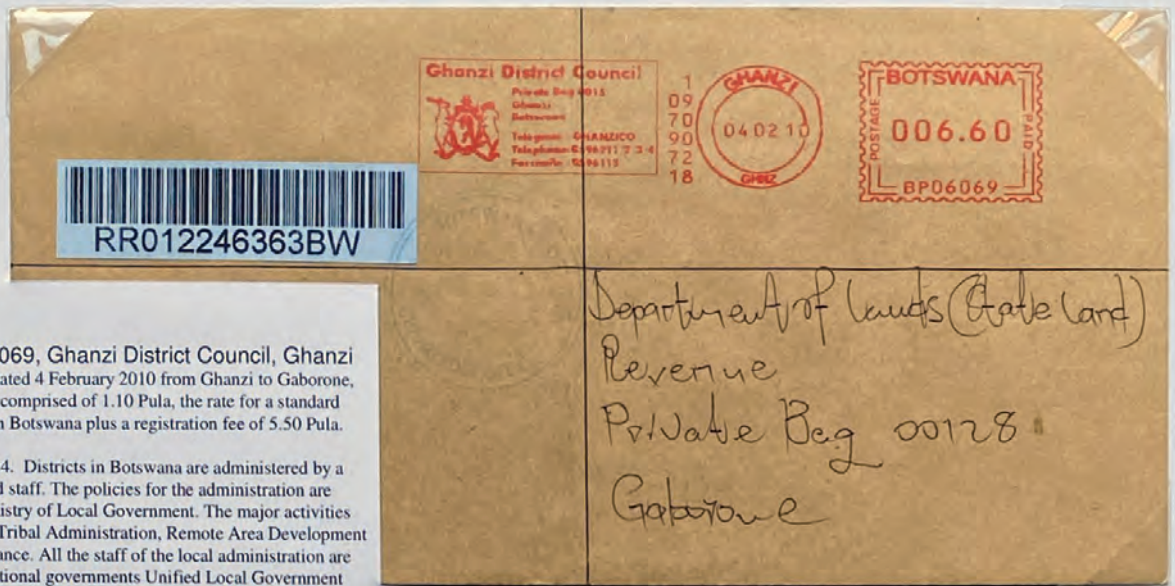 Ghanzi District Council
Private Bag 0015
Ghanzi
Botswana
Telegrams: GHANZICO
Telephone: 6596211 2 3 4
Facsimile: 6596115
1
09
70
90
72
18
GHANZI
04 02 10
GHNZ
BOTSWANA
POSTAGE
006.60
PAID
BP06069
RR012246363BW
Department of Lands (State Land)
Revenue
Private Bag 00128
Gaborone
069, Ghanzi District Council, Ghanzi
ated 4 February 2010 from Ghanzi to Gaborone,
comprised of 1.10 Pula, the rate for a standard
Botswana plus a registration fee of 5.50 Pula.
4. Districts in Botswana are administered by a
staff. The policies for the administration are
istry of Local Government. The major activities
Tribal Administration, Remote Area Development
ance. All the staff of the local administration are
tional governments Unified Local Government